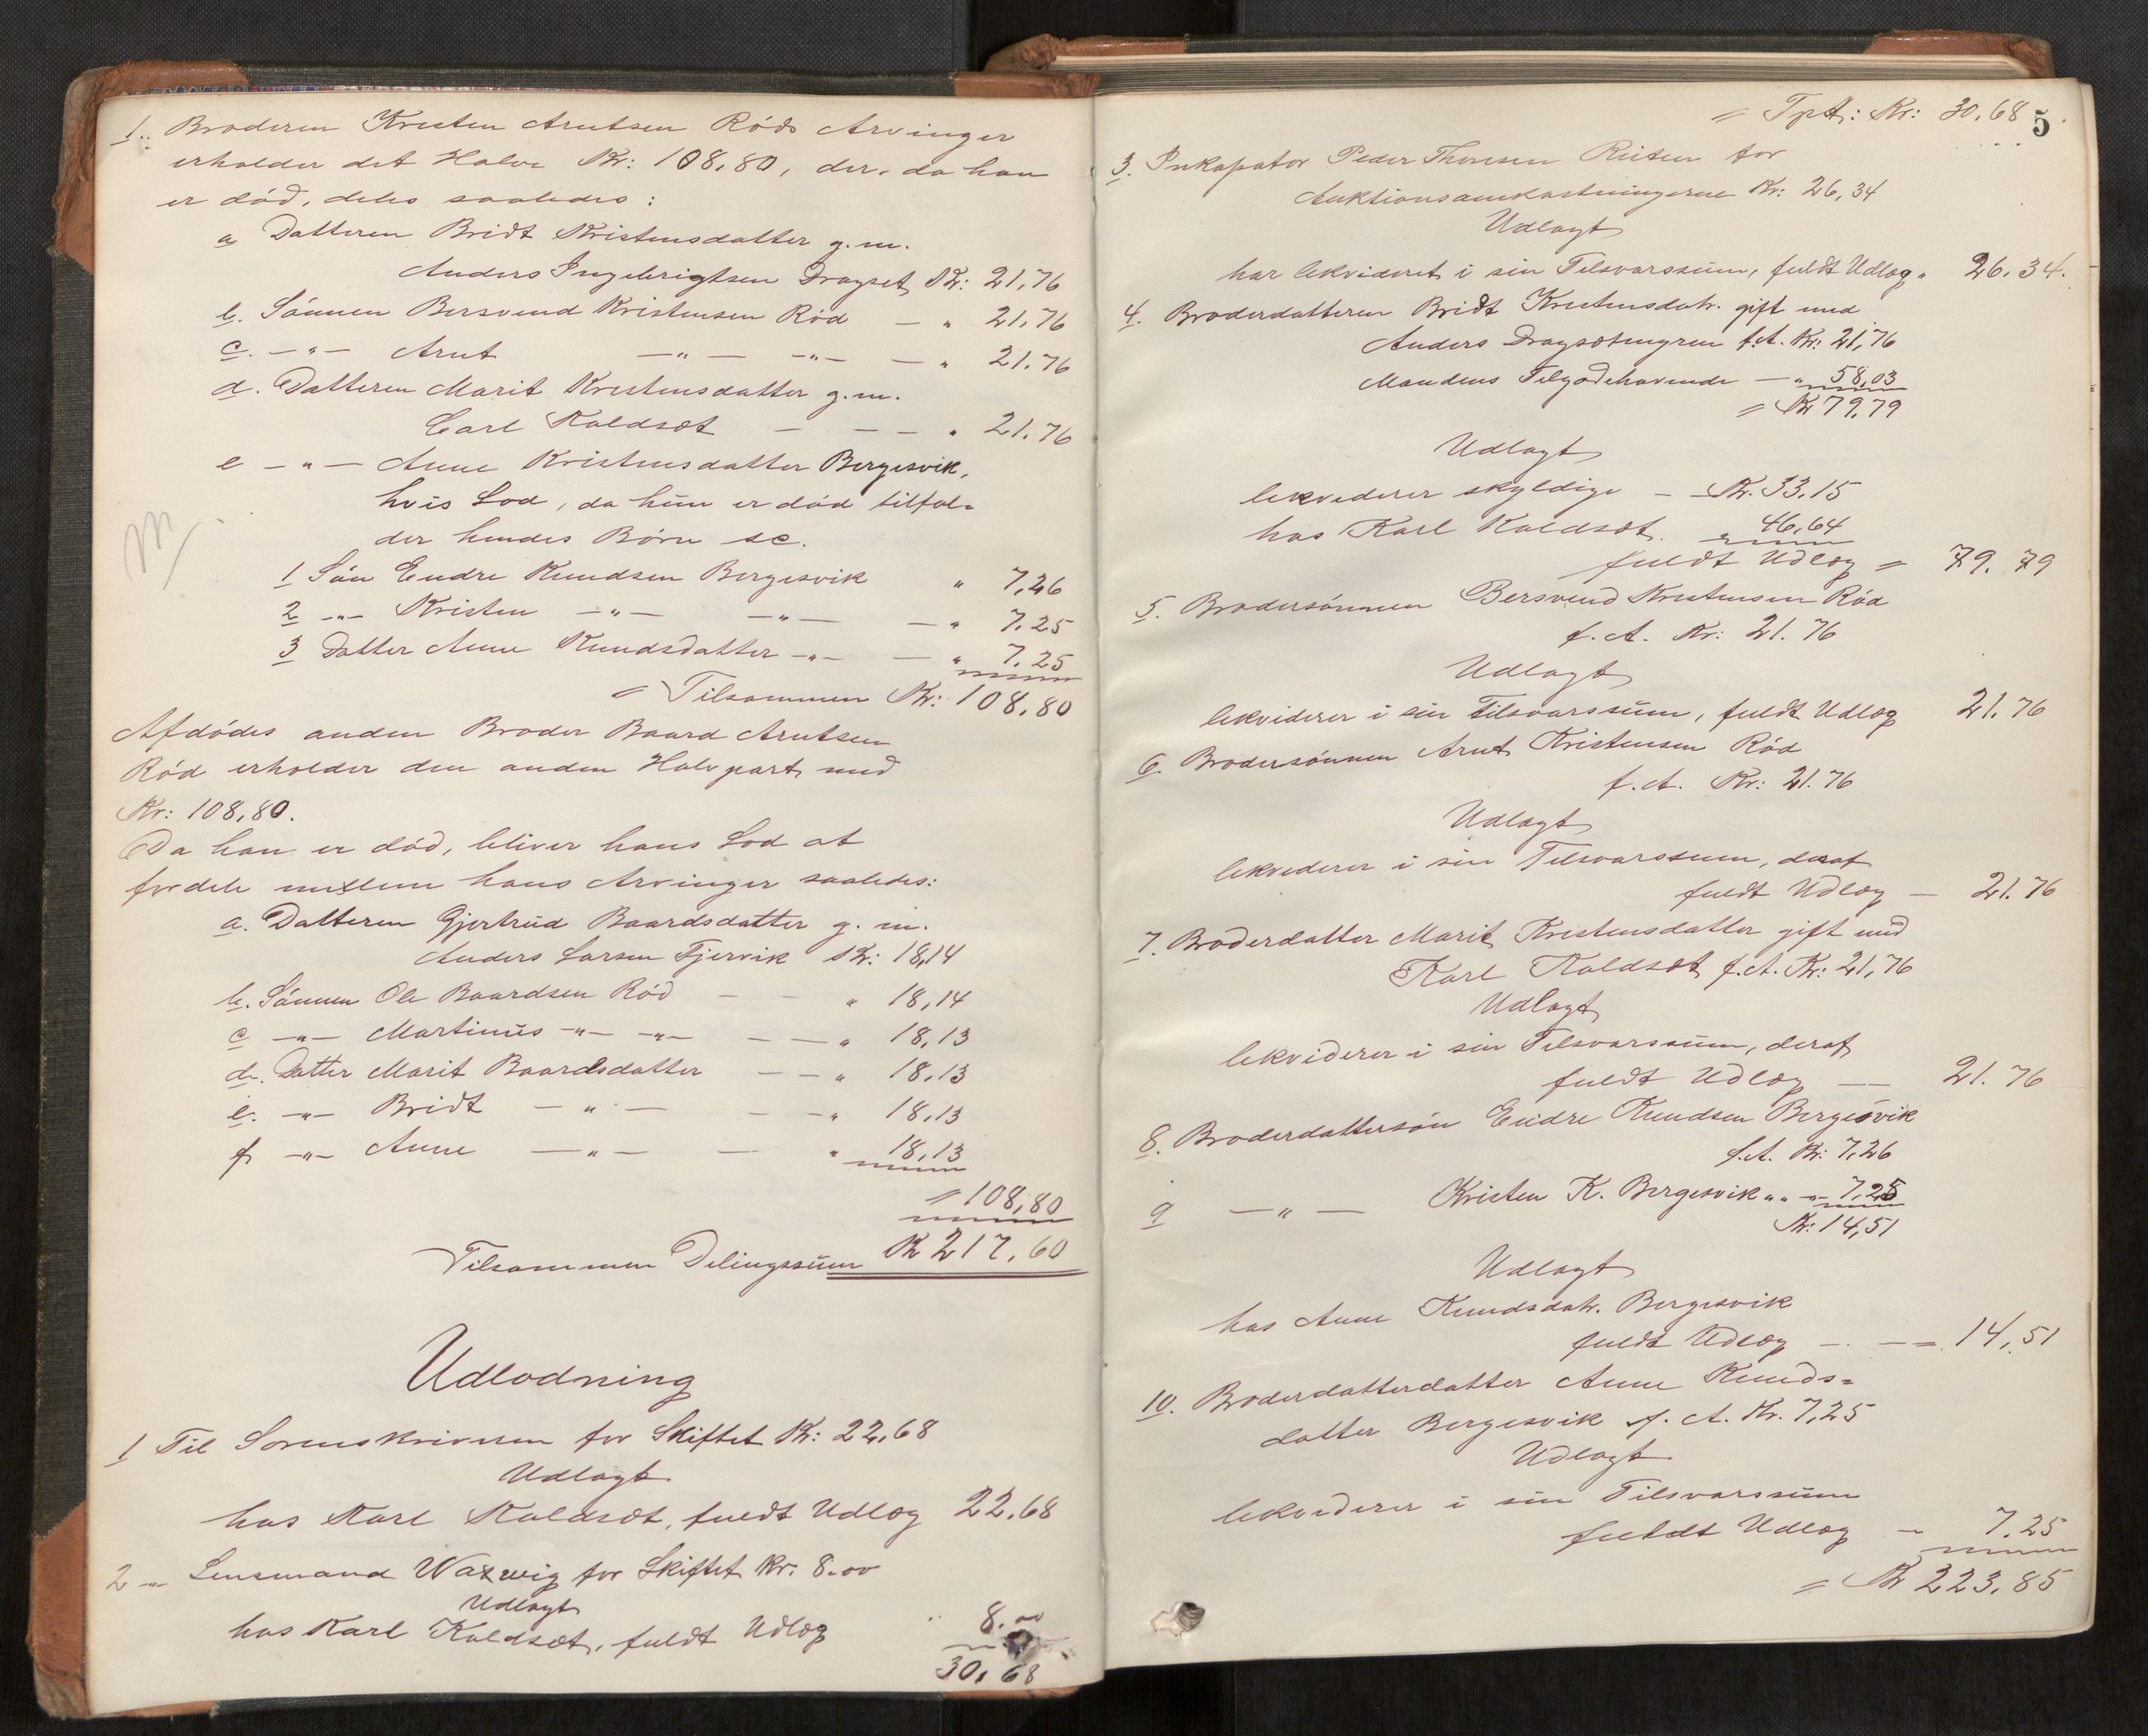 1. Broderen Kristen Arntsen Röds Arvinger
erholder det Halve Kr: 108,80, der, da han
er död, deles saaledes:
a Datteren Bridt Kristensdatter g.m.
Anders Ingebrigtsen Dragset Kr: 21,76
b. Sönnen Bersvend Kristensen Röd — " 21,76
c. —"— Arnt —"— —"— — " 21.76
d. Datteren Marit Kristensdatter g.m.
Carl Kaldsæt — — — " 21.76
e —"— Anne Kristensdatter Bergesvik,
hvis Lod, da hun er död tilfal-
der hendes Börn sc.
1 Sön Endre Knudsen Bergesvik " 7,26
2 —"— Kristen —"— —"— — " 7.25
3 Datter Anne Knudsdatter —"— — " 7.25
= Tilsammen Kr: 108,80
Afdödes anden Broder Baard Arntsen
Röd erholder den anden Halvpart med
Kr: 108,80.
Da han er död, bliver hans Lod at
fordele mellem hans Arvinger saaledes:
a. Datteren Gjertrud Baardsdatter g.m.
Anders Larsen Tjervik Kr: 18,14
b. Sönnen Ole Baardsen Röd — — " 18,14
c —"— Martinus —"— —"— — — " 18,13
d. Datter Marit Baardsdatter — — " 18,13
e. —"— Bridt —"— — — " 18,13
f —"— Anne —"— — " 18,13
= 108,80
Tilsammen Delingssum Kr 217,60
Udlodning
1 Til Sorenskriveren for Skiftet Kr: 22,68
Udlagt
hos Karl Kaldsæt, fuldt Udlæg 22,68
2 —"— Lensmand Waxwig for Skiftet Kr: 8.00
Udlagt
hos Karl Kaldsæt, fuldt Udlæg " 8.00
30,68
= Tpt: Kr: 30,68
5
3. Inkasator Peder Thoresen for
Auktionsomkostningerne Kr: 26,34
Udlagt
har lekvideret i sin Tilsvarssum, fuldt Udlæg " 26.34.
4. Broderdatteren Bridt Kristensdatr. gift med
Anders f.A. Kr: 21,76
Mandens Tilgodehavende — " 58,03
= Kr 79,79
Udlagt
lekviderer skyldige — Kr. 33,15
hos Karl Kaldsæt " 46,64
fuldt Udlæg = 79.79
5. Brodersönnen Bersvend Kristensen Röd
f.A. Kr: 21.76
Udlagt
lekviderer i sin Tilsvarssum, fuldt Udlæg 21.76
6. Brodersönnen Arnt Kristensen Röd
f.A. Kr: 21.76
Udlagt
lekviderer i sin Tilsvarssum, deraf
fuldt Udlæg — 21.76
7. Broderdatter Marit Kristensdatter gift med
Karl Kaldsæt f.A. Kr: 21,76
Udlagt
lekviderer i sin Tilsvarssum, deraf
fuldt Udlæg — 21.76
8. Broderdattersön Endre Knudsen Bergesvik
f.A. Kr: 7,26
9 —"— Kristen K. Bergesvik " " — 7,25
Kr: 14,51
Udlagt
hos Anne Knudsdatr. Bergesvik
fuldt Udlæg — — = 14,51
10. Broderdatterdatter Anne Knuds-
datter Bergesvik f.A. Kr. 7,25
Udlagt
lekviderer i sin Tilsvarssum
fuldt Udlæg — 7.25
= Kr 223,85